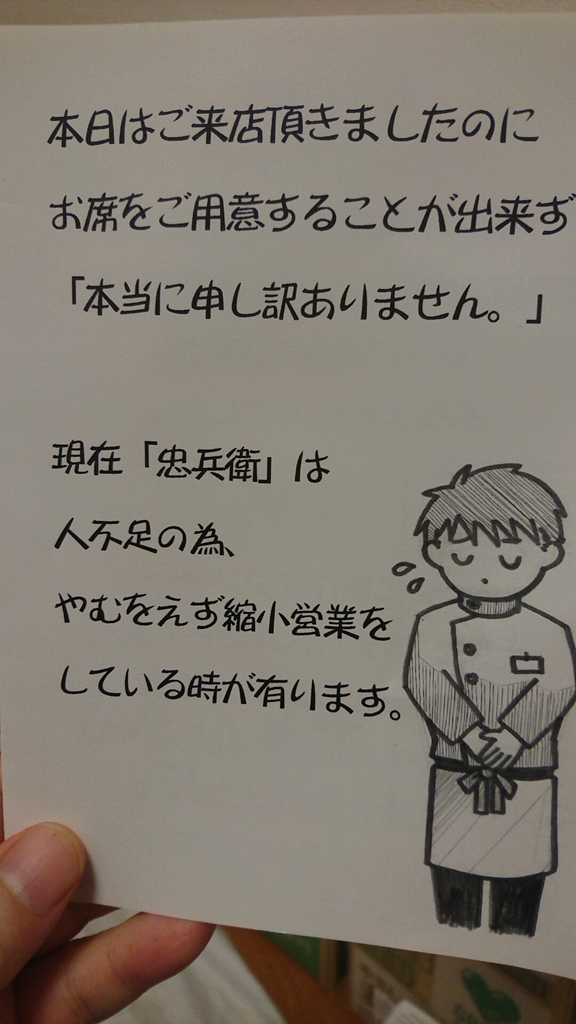 本日はご来店頂きましたのに
お席をご用意することが出来ず
「本当に申し訳ありません。」
現在「忠兵衛」は
人不足の為、
やむをえず縮小営業を
している時が有ります。